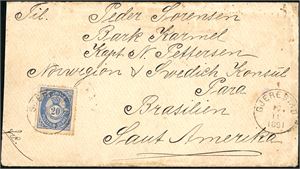 Til.
Peder Sörensen
Bark Karmel
Kapt N. Pettersen
Norwegian & Swedich Konsül
Para
Brasilien
Saut Amerika
20
GJERES
1891